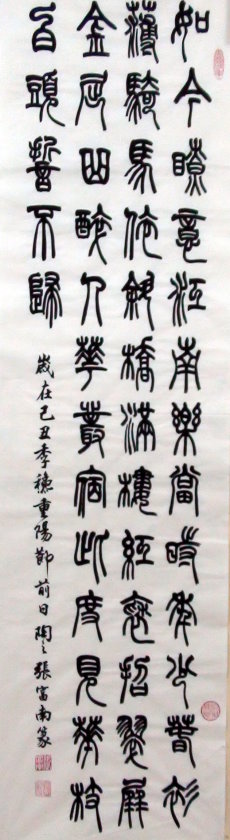 如今瞭意江南樂當時年少春衫
薄騎馬依斜橋滿樓紅袖招翠屏
金屈曲醉入華叢宿此度見華枝
白頭誓不歸
歲在己丑季穐重陽節前日陶之張富南篆